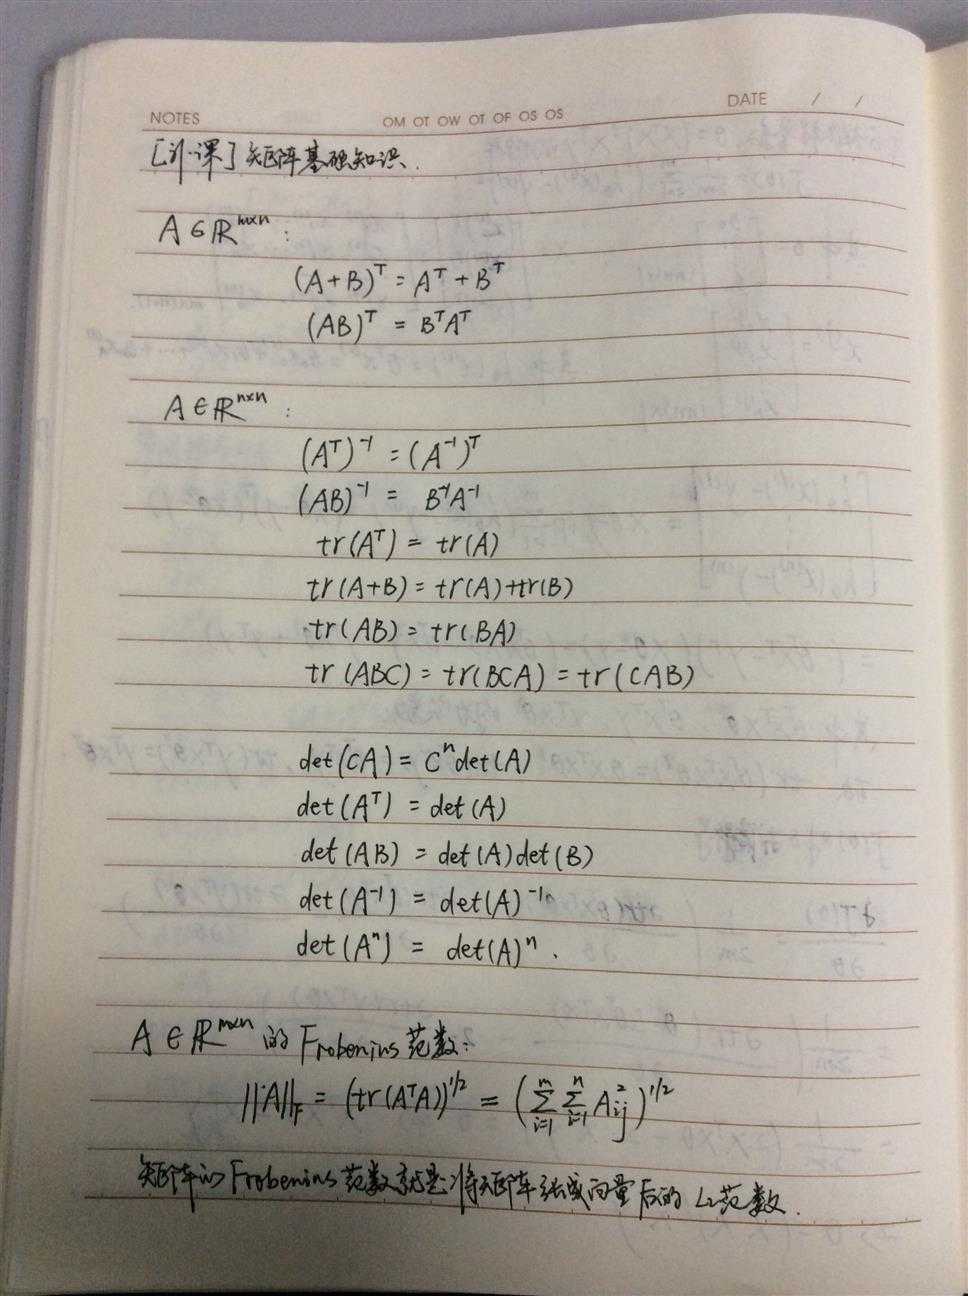 NOTES OM OT OW OT OF OS OS DATE / /
[补课] 矩阵基础知识.
A∈ℝ^{m×n}:
(A+B)^T = A^T + B^T
(AB)^T = B^T A^T
A∈ℝ^{n×n}:
(A^T)^{-1} = (A^{-1})^T
(AB)^{-1} = B^{-1}A^{-1}
tr(A^T) = tr(A)
tr(A+B) = tr(A)+tr(B)
tr(AB) = tr(BA)
tr(ABC) = tr(BCA) = tr(CAB)
det(cA) = c^n det(A)
det(A^T) = det(A)
det(AB) = det(A)det(B)
det(A^{-1}) = det(A)^{-1}
det(A^n) = det(A)^n.
A∈ℝ^{m×n} 的 Frobenius 范数:
||A||_F = (tr(A^T A))^{1/2} = (∑_{i=1}^{m} ∑_{i=1}^{n} A_{ij}^2)^{1/2}
矩阵的 Frobenius 范数就是将矩阵张成向量后的 L₂范数.